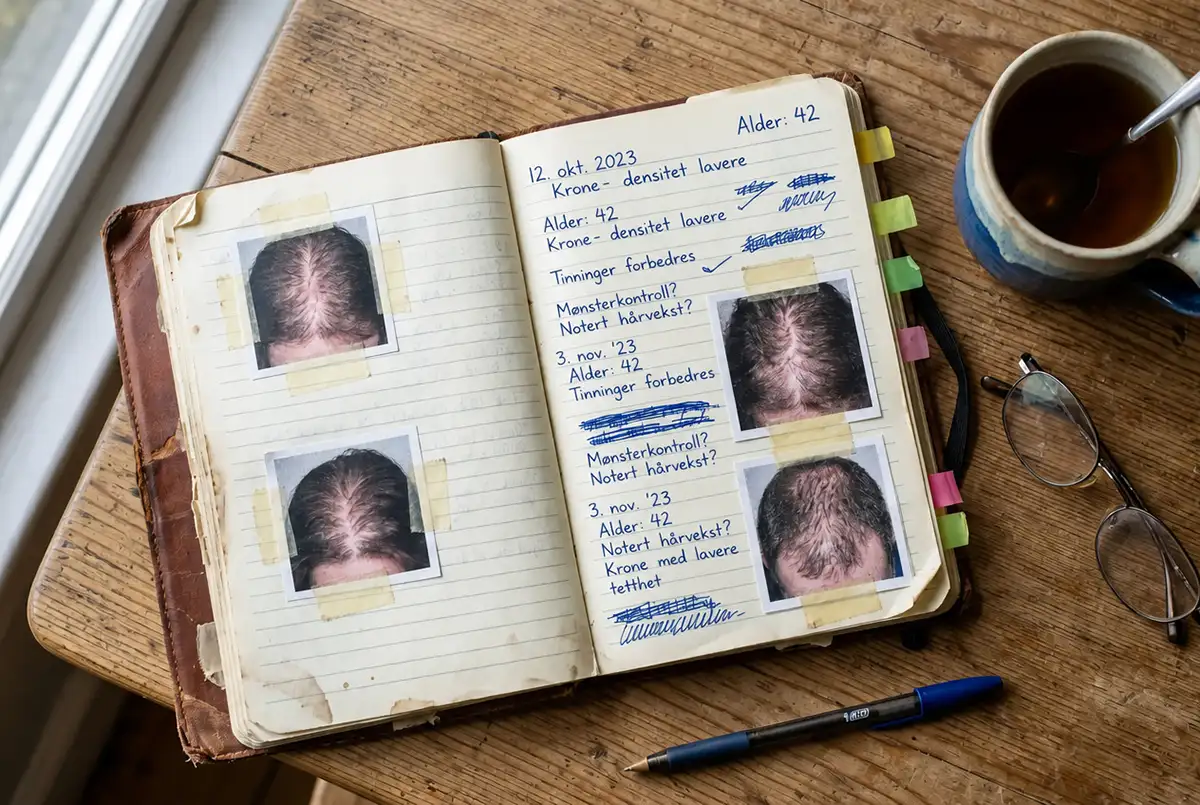 Alder: 42
12. okt. 2023
Krone- densitet lavere
Alder: 42
Krone- densitet lavere
Tinninger forbedres
Mønsterkontroll?
Notert hårvekst?
3. nov. '23
Alder: 42
Tinninger forbedres
Mønsterkontroll?
Notert hårvekst?
3. nov. '23
Alder: 42
Notert hårvekst?
Krone med lavere
tetthet